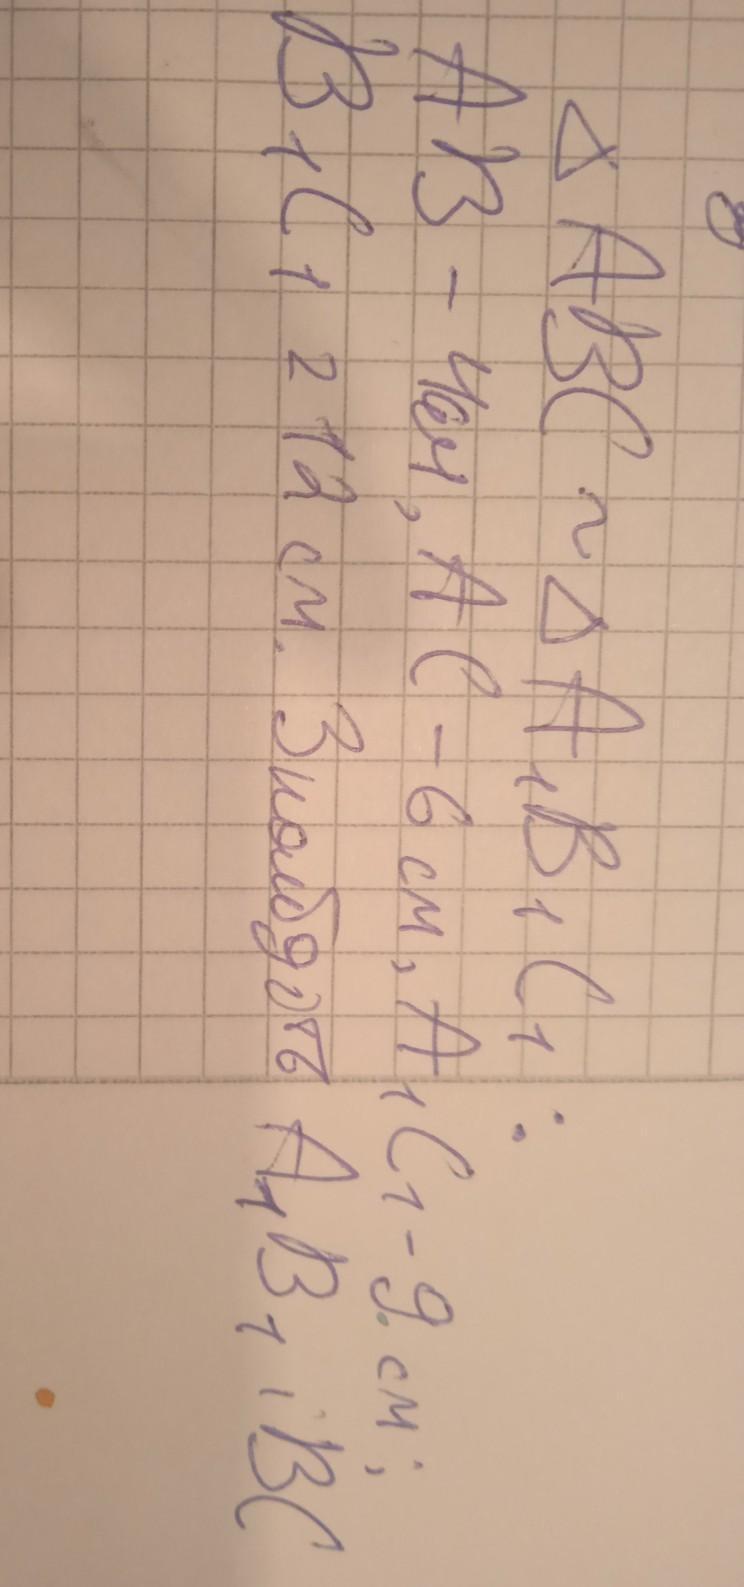 Δ ABC ~ Δ A₁B₁C₁:
AB - 4см, AC - 6 см, A₁C₁ - 9 см;
B₁C₁ 2 12 см. Знайдіть A₁B₁ і BC